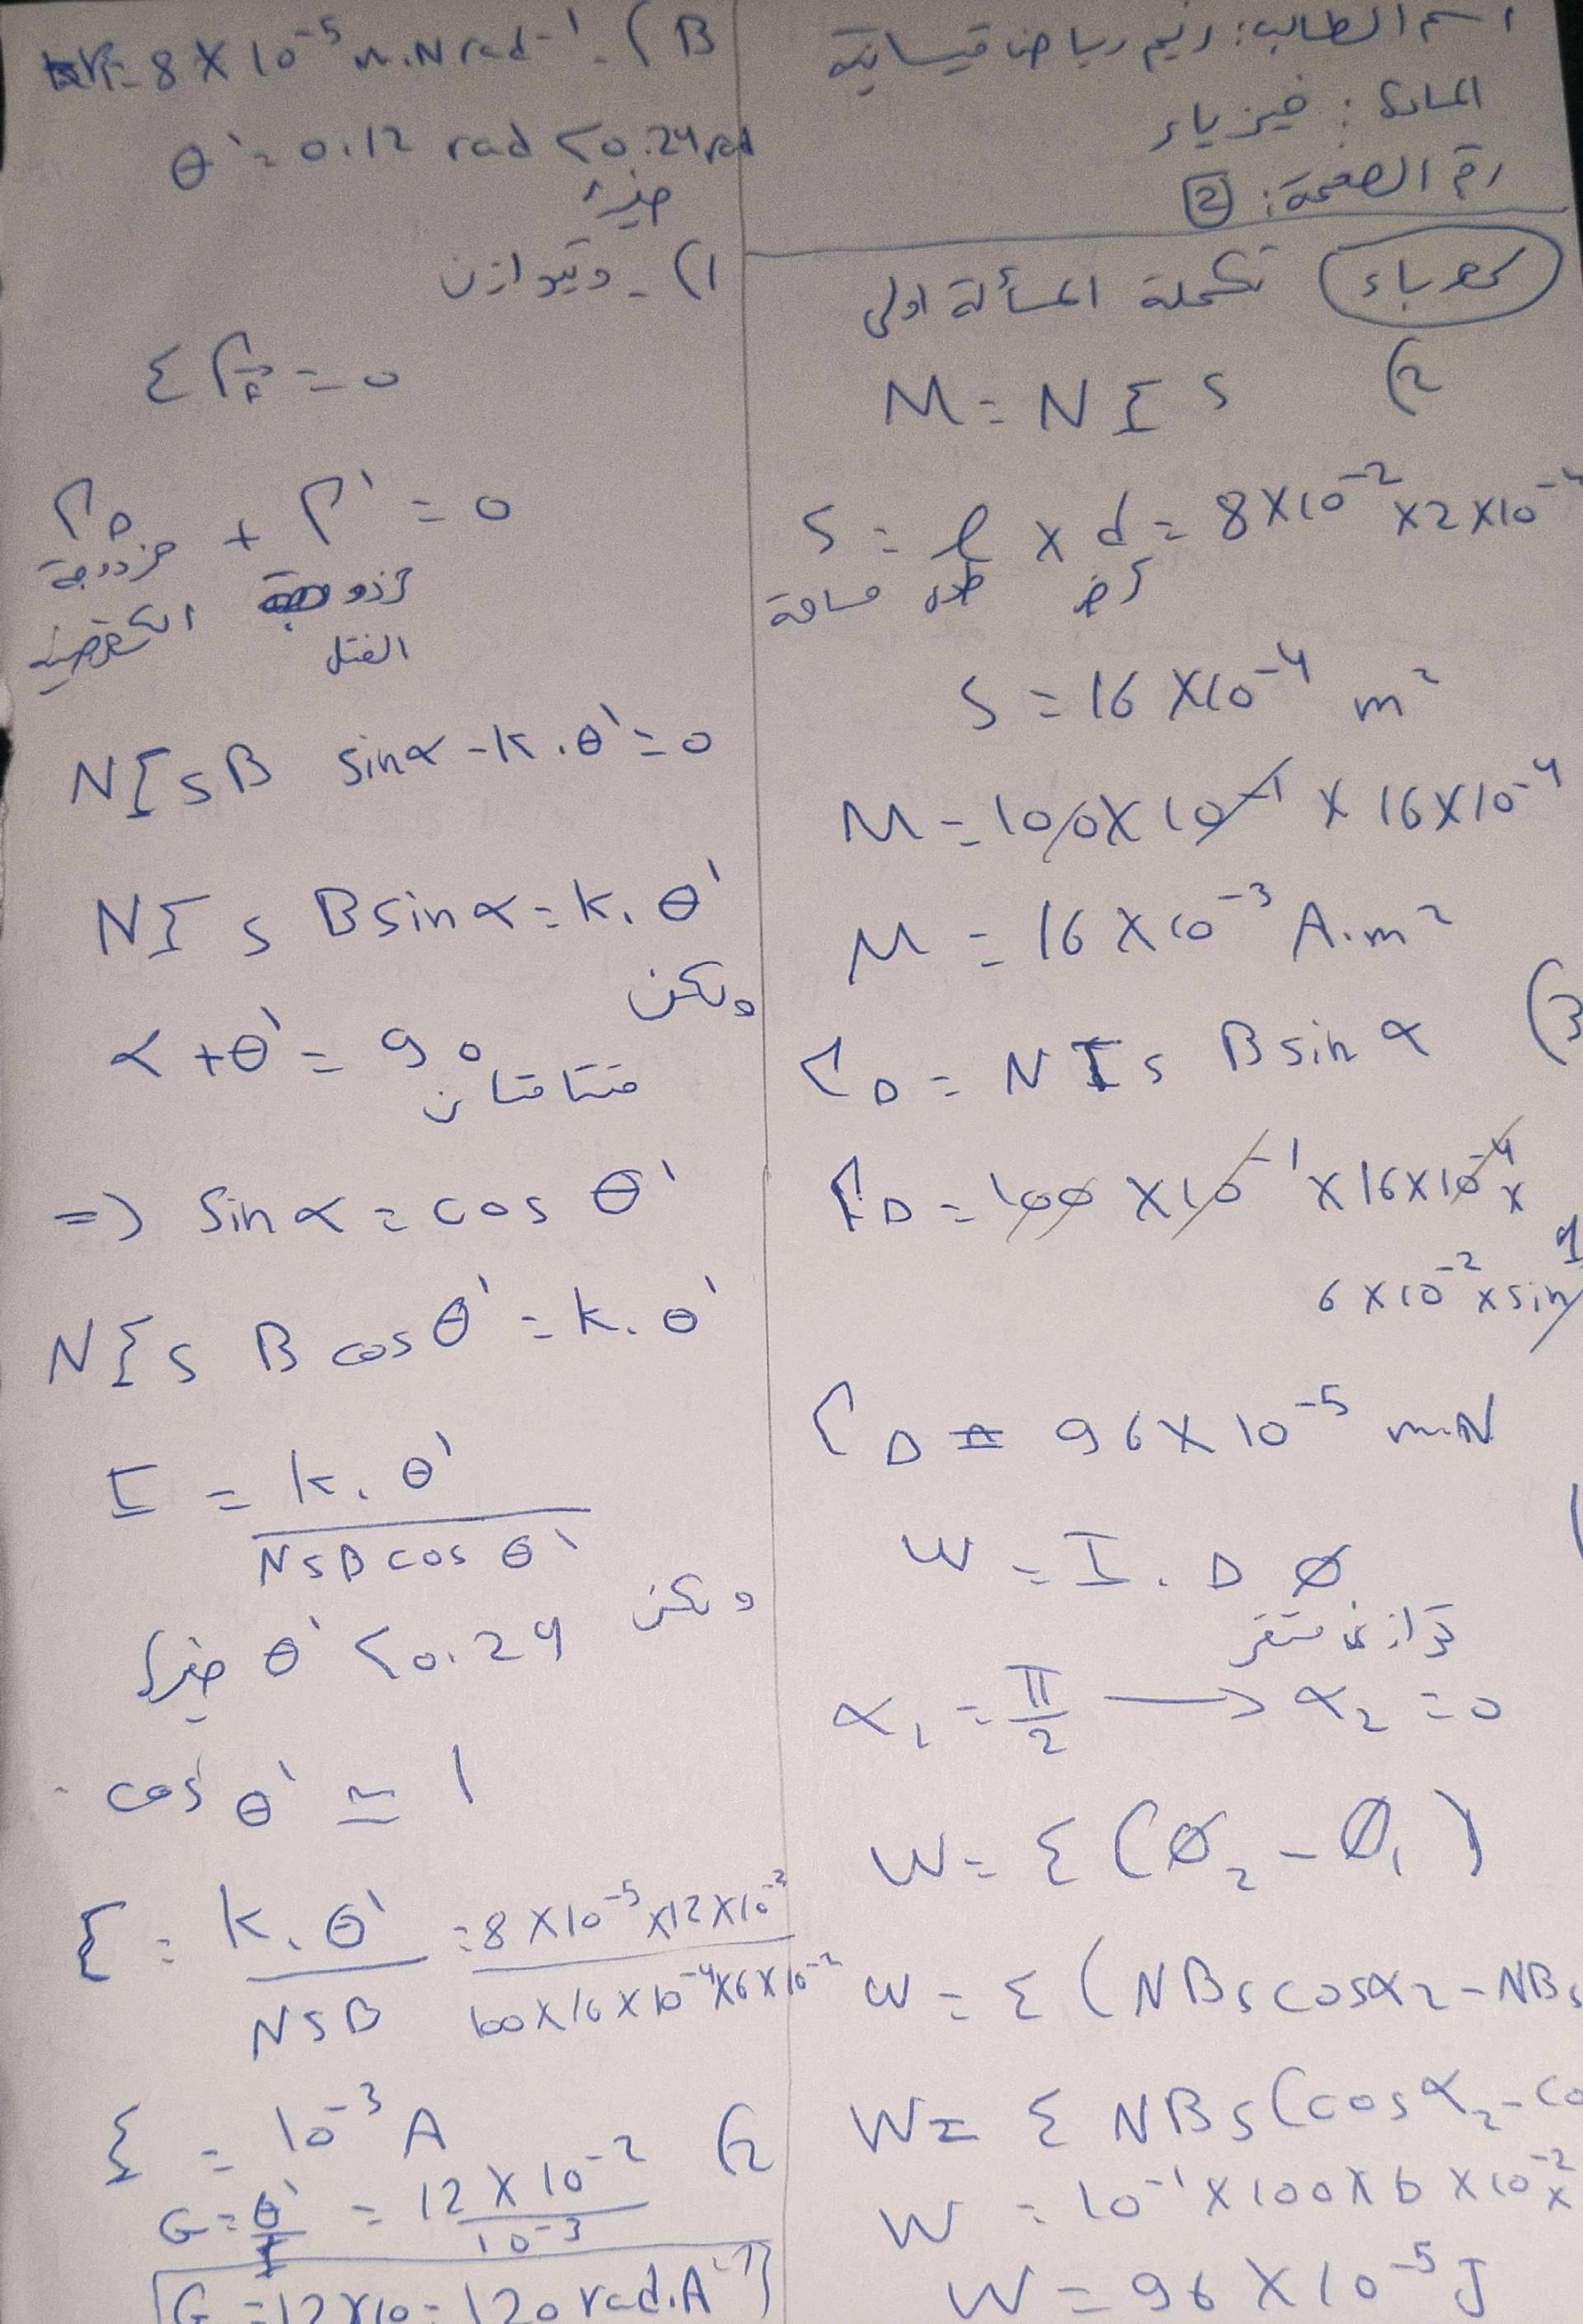 اسم الطالب: رنيم رياض قيسانية
المادة: فيزياء
رقم الصفحة: 2
كهرباء تكملة المسألة اولى
2)
M = N I S
S = l × d = 8×10⁻² × 2×10⁻
مساحة طول عرض
S = 16 × 10⁻⁴ m²
M = 100 × 10⁻¹ × 16×10⁻⁴
M = 16 × 10⁻³ A.m²
3) Γ_Δ = N I S B sin α
Γ_Δ = 100 × 10⁻¹ × 16×10⁻⁴ ×
6×10⁻² × sin
Γ_Δ = 96 × 10⁻⁵ m.N
W = I . Δ Ø
توازن مستقر
α₁ = π/2 → α₂ = 0
W = I (Ø₂ - Ø₁)
W = I (N B s cos α₂ - N B s
W = I N B S (cos α₂ - co
W = 10⁻¹ × 100 × 6 × 10⁻² ×
W = 96 × 10⁻⁵ J
B) K = 8 × 10⁻⁵ m.N rad⁻¹
θ' = 0.12 rad < 0.24 rad
صغيرة
1) - وتتوازن
Σ Γ = 0
Γ_Δ + Γ' = 0
مزدوجة الكهرطيسية
الفتل
N I S B sin α - k . θ' = 0
N I S B sin α = k . θ'
ولكن
α + θ' = 90 متتامتان
=> sin α = cos θ'
N I S B cos θ' = k . θ'
I = k . θ' / N S B cos θ'
ولكن
θ' < 0.24 صغيرة
cos θ' ≃ 1
I = k . θ' / N S B = 8×10⁻⁵ × 12×10⁻² / 100×16×10⁻⁴×6×10⁻²
I = 10⁻³ A
2) G = θ' / I = 12 × 10⁻² / 10⁻³
G = 12×10 = 120 rad.A⁻¹